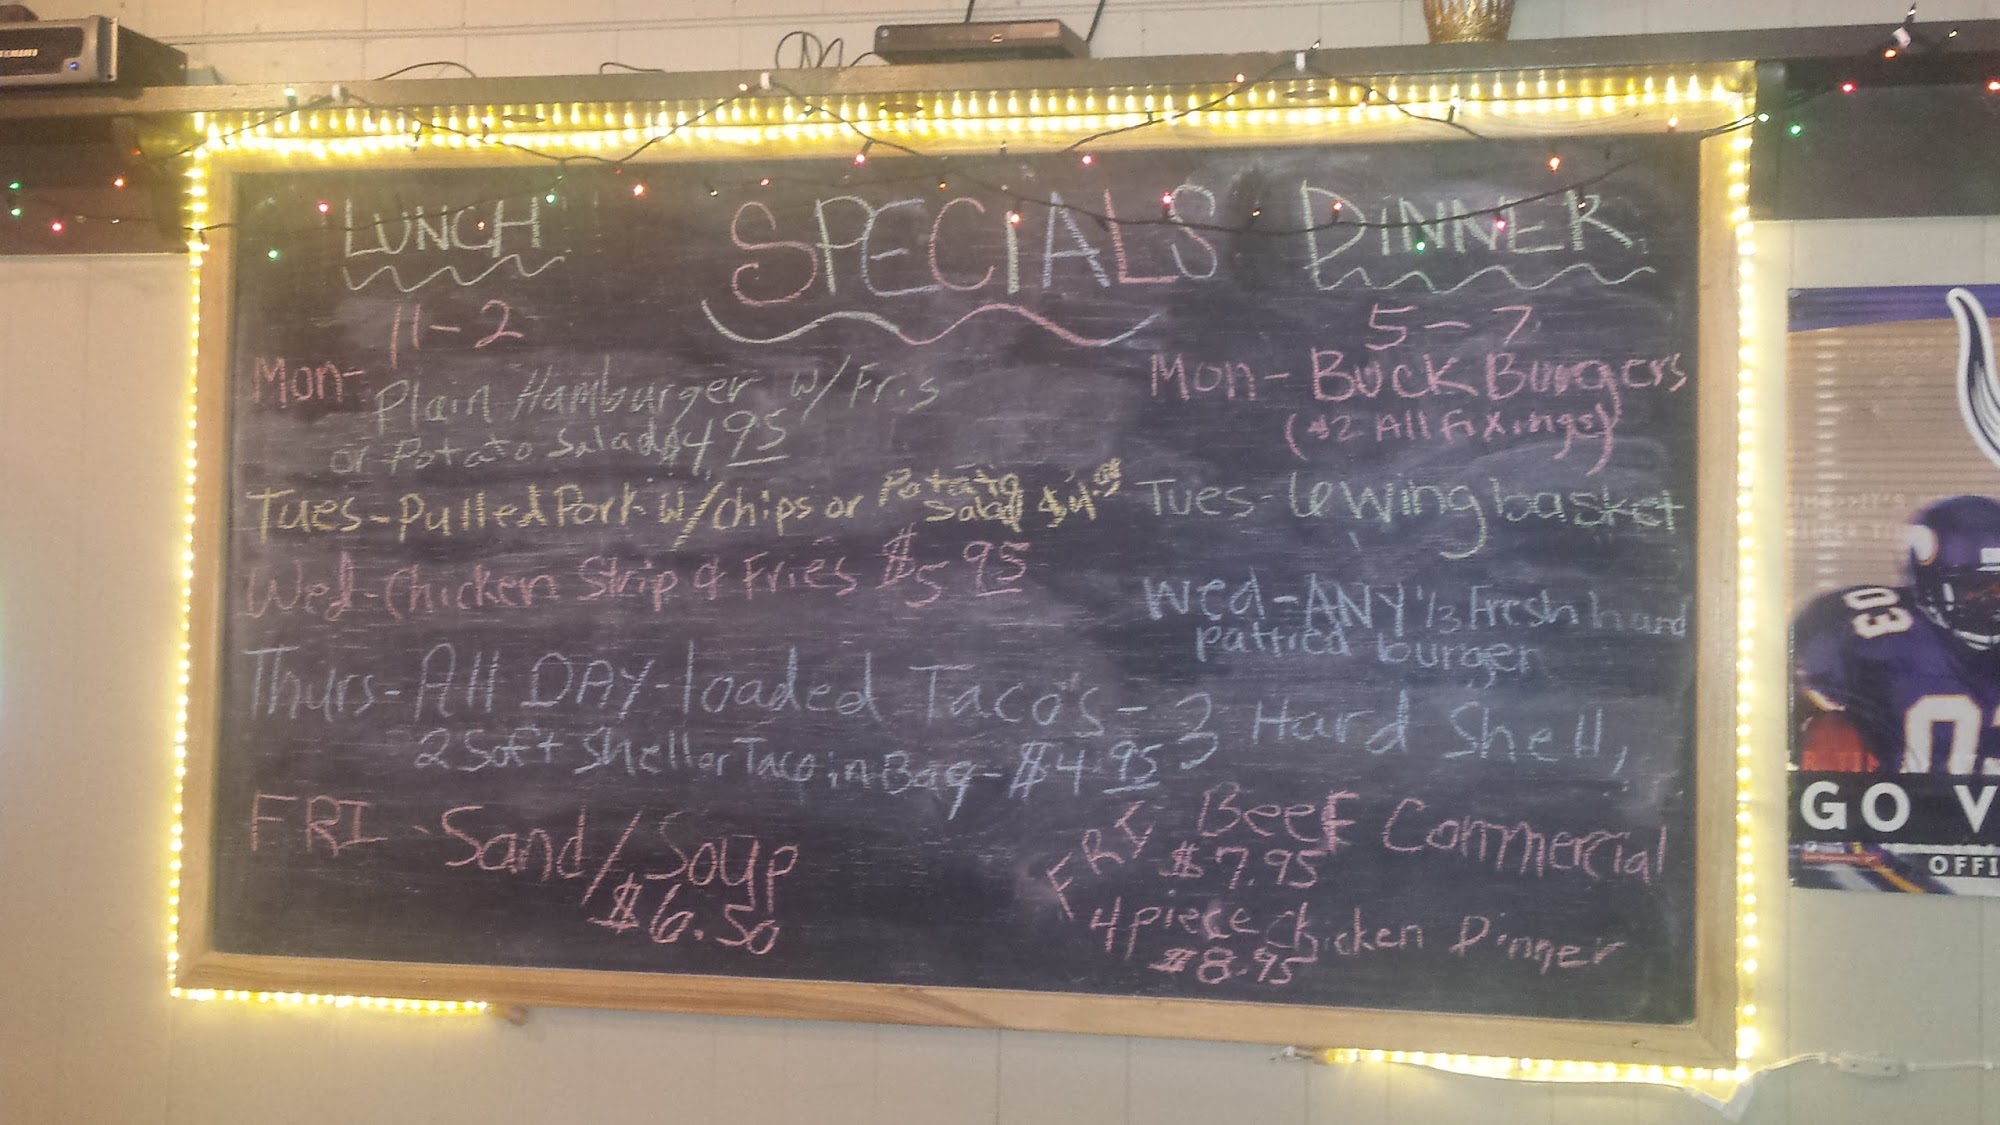 LUNCH
SPECIALS
DINNER
11-2
5-7
Mon- Plain Hamburger w/ Fris
or Potato Salad $4 95
Tues- Pulled Pork w/chips or Potato
Salad $4.95
Wed- Chicken Strip & Fries $5 95
Mon- Buck Burgers
($2 All Fixings)
Tues- 6 wing basket
Wed- ANY 1/3 Fresh hand
pattied burger
Thurs- All DAY- loaded Taco's - 3 Hard Shell,
2 Soft Shell or Taco in Bag - $4.95
FRI - Sand/Soup
$6.50
FRI- Beef Commercial
$7.95
4 piece Chicken Dinner
$8.95
03
03
GO V
OFFI